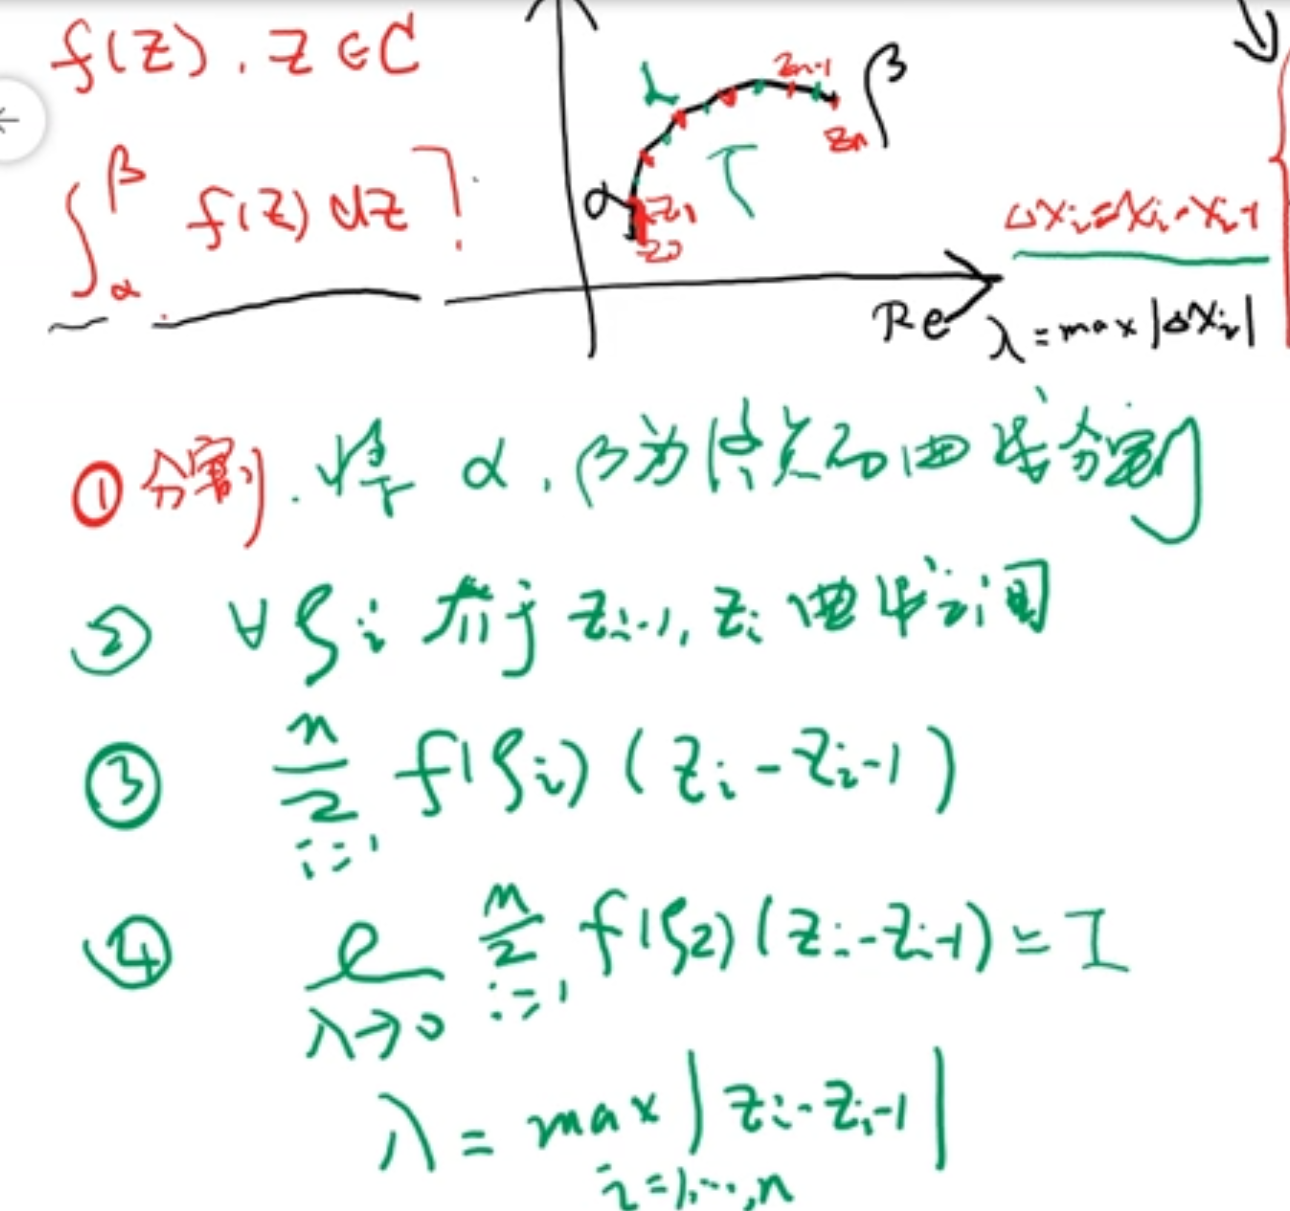 f(z). z∈C
∫_α^β f(z) dz ?
α
β
L
T
z_0
z_1
z_{n-1}
z_n
Re
Δx_i = x_i - x_{i-1}
λ = max |Δx_i|
① 分割. 将 α, β为终点的曲线分割
② ∀ζ_i 介于 z_{i-1}, z_i 曲线之间
③ \sum_{i=1}^{n} f(ζ_i) (z_i - z_{i-1})
④ \underset{λ→0}{l} \sum_{i=1}^{n} f(ζ_i) (z_i - z_{i-1}) = I
λ = max | z_i - z_{i-1} |
i=1,...,n